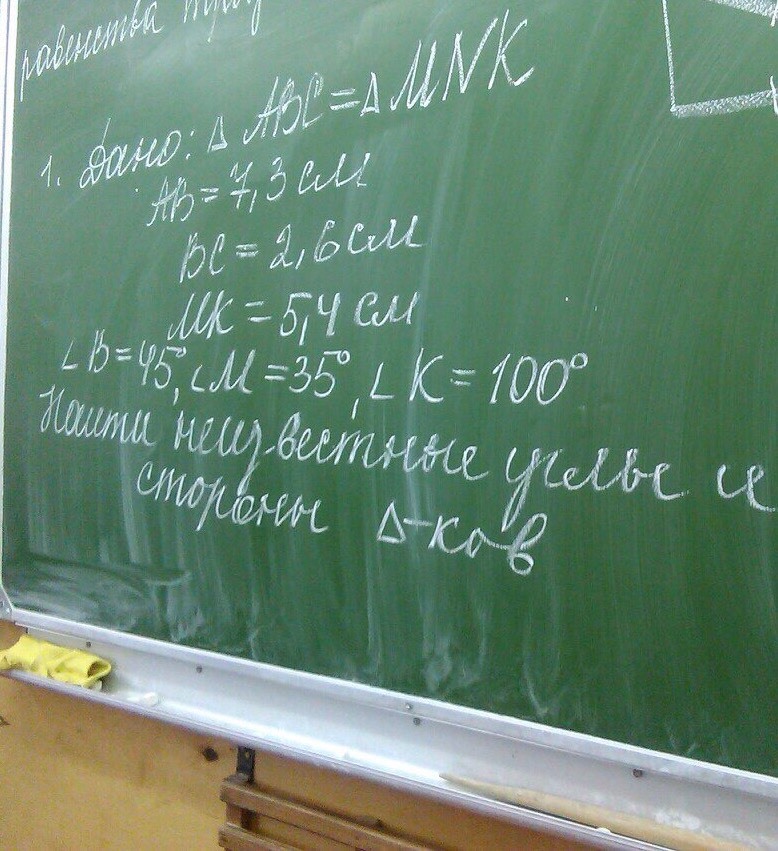 равенства
1. Дано: Δ ABC = Δ MNK
AB = 7,3 см
BC = 2,6 см
MK = 5,4 см
∠B = 45°, ∠M = 35°, ∠K = 100°
Найти неизвестные углы и
стороны Δ-ков